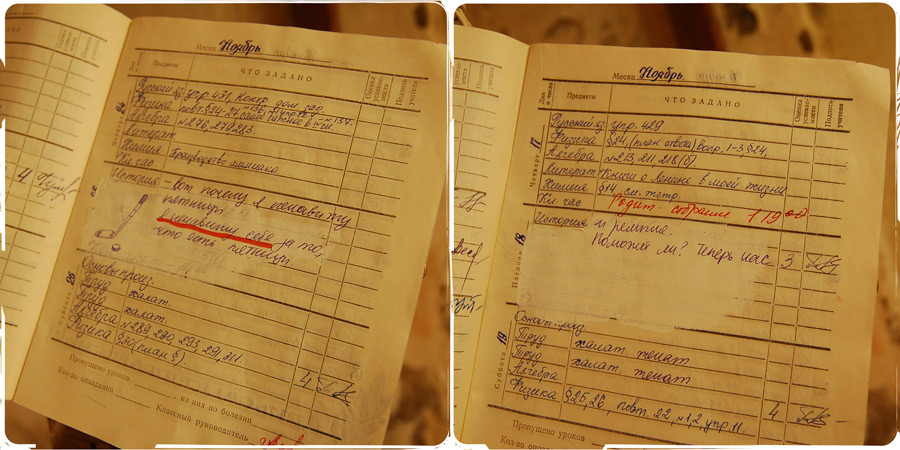 Месяц Ноябрь
Дни и числа
Предметы
ЧТО ЗАДАНО
Оценка успеваемости
Подпись учителя
24
Русский яз упр. 431, Контр. дом. раб.
Физика повт. §34
Алгебра № 276, 279, 283.
Литерат
Химия Производство аммиака
Кл. час
25
История - вот почему я ненавижу
пятницы
я ненавижу себя за то,
что есть пятницы
Суббота 26
Основы произ.
Труд халат
Труд халат
Алгебра № 289, 290, 293, 291, 311.
Физика §30 (план §).
4
Пропущено уроков
Кол-во опозданий
, из них по болезни
Классный руководитель
4
Месяц Ноябрь
Дни и числа
Предметы
ЧТО ЗАДАНО
Оценка успеваемости
Подпись учителя
Четверг 17
Русский яз упр. 429
Физика §24, (план ответа) вопр. 1-3 §24,
Алгебра № 213, 211, 218 (б).
Литерат Книги о Ленине в моей жизни
Химия §14, см. тетр.
Кл час Родит собрание в 19 00
Пятница 18
История и религия.
Поможет ли? Теперь нас
3
Суббота 19
Основ. произ.
Труд халат
Труд халат
Алгебра
Физика §25, 26, повт. 22, № 1, 2, упр. 11.
4
Пропущено уроков
Кол-во опозданий